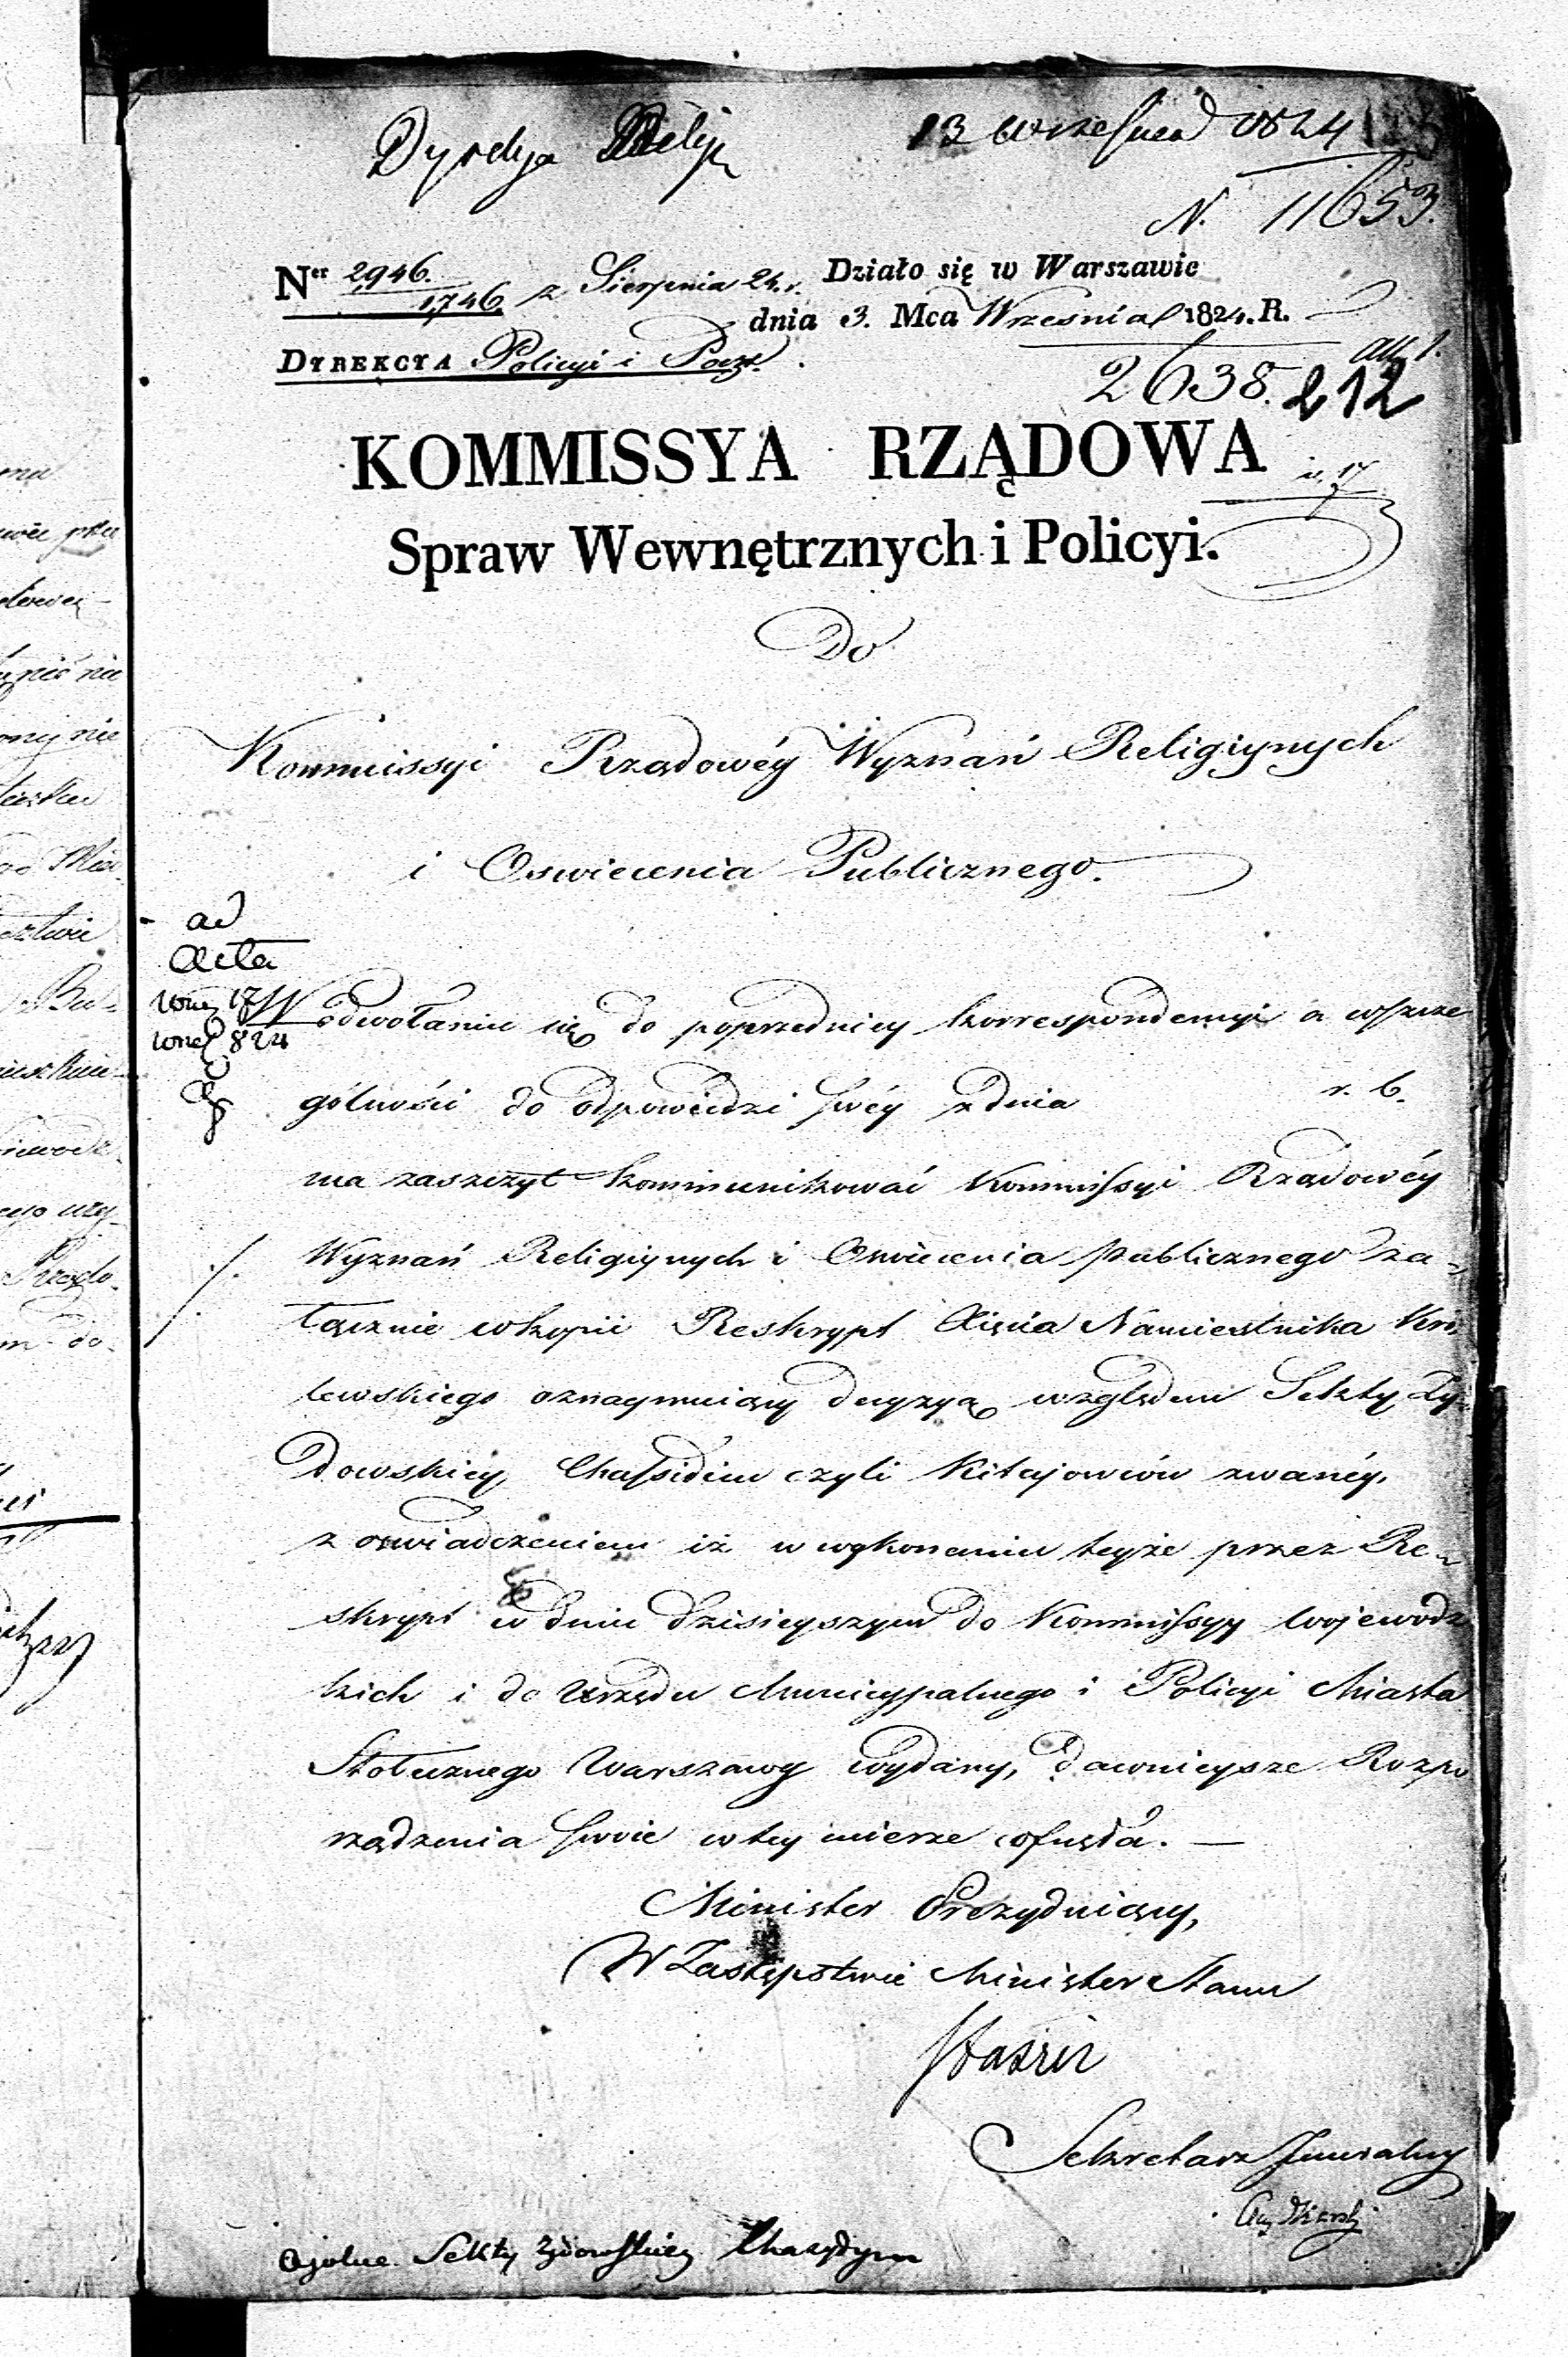 13 Września 1824
N. 11653.
Ner 2946./1746. z Sierpnia 24. r. Działo się w Warszawie
dnia 3. Mca Września 1824. R.
DYREKCYA Policyi i Poczt.
2638. 212
KOMMISSYA RZĄDOWA
Spraw Wewnętrznych i Policyi.
Do
Kommissyi Rządowéy Wyznań Religiynych
i Oswiecenia Publicznego.
ad
Acta
W odwołaniu się do poprzedniey korrespondencyi a wszcze
gólności do odpowiedzi swéy z dnia r. b.
ma zaszczyt kommunikować Kommissyi Rządowéy
Wyznań Religiynych i Oswiecenia Publicznego za-
łącznie w kopii Reskrypt Xięcia Namiestnika Kró-
lewskiego oznaymuiący decyzyą względem Sekty Ży-
dowskiey, Chassidim czyli Kitajowców zwanéy,
z oswiadczeniem iż w wykonaniu teyże przez Re-
skrypt w dniu dzisieyszym do Kommissyy Wojewódz
kich i do Urzędu Municypalnego i Policyi Miasta
Stołecznego Warszawy wydany, dawnieysze Rozpo
rządzenia swoie w tey mierze cofnęła. —
Minister Prezyduiący,
W Zastępstwie Minister Stanu
Staszic
Sekretarz Jeneralny
Sekty Żydowskiey Chasydym